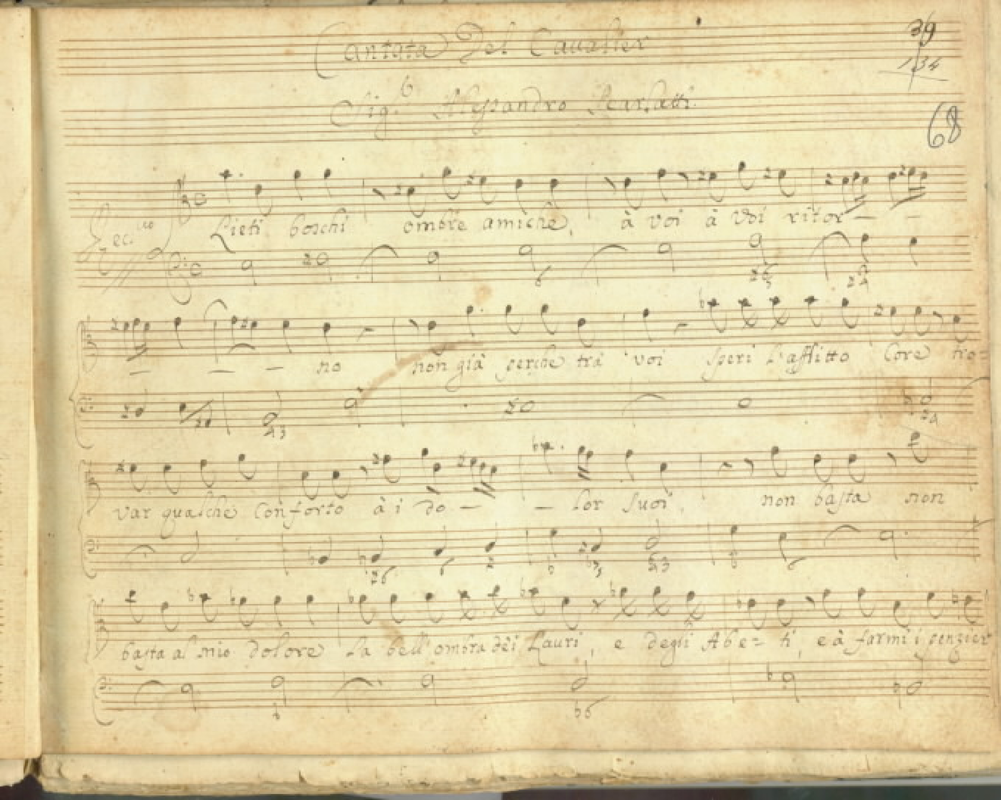 Cantata Del Cavalier
39
134
Sig.r Alessandro Scarlatti.
68
Rec.vo
Lieti boschi ombre amiche, à voi à voi ritor—
— — — no non già perche trà voi speri l'afflitto Core tro=
var qualche Conforto à i do— — lor suoi, non basta non
basta al mio dolore la bell'ombra dei Lauri, e degli Abe= ti, e à farmi i penzier